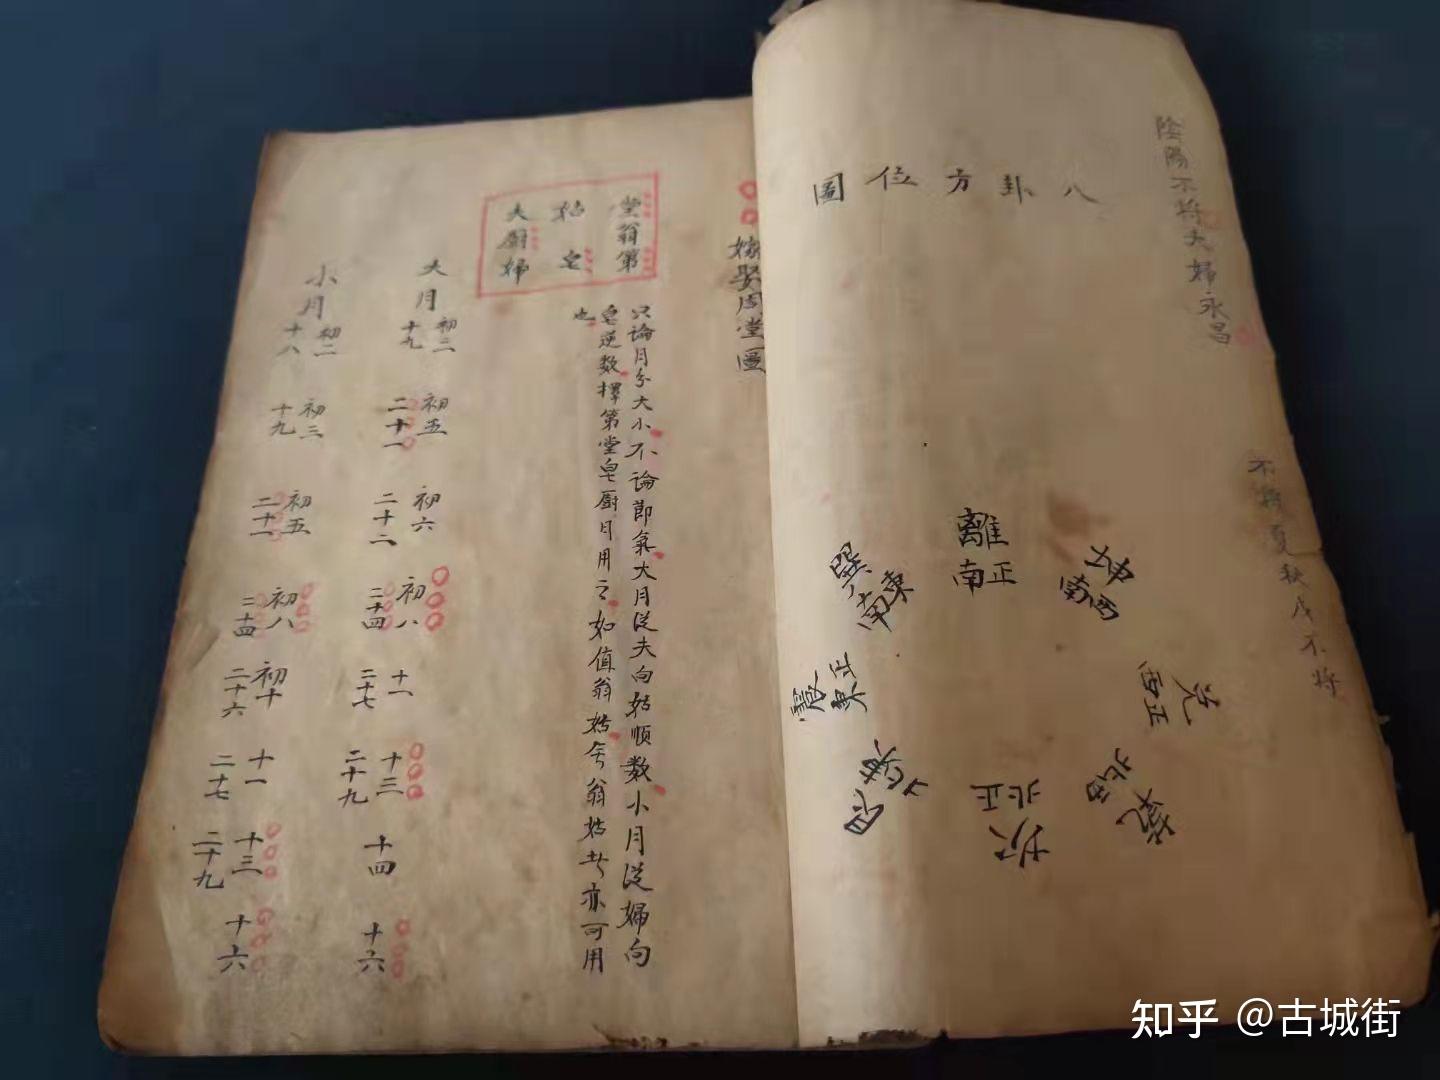 陰陽不將夫婦永昌
不將夏秋戊不將
八卦方位圖
離
正南
坤
西南
兌
正西
乾
西北
坎
正北
艮
東北
震
正東
巽
東南
嫁娶周堂圖
堂翁第
姑 皂
夫廚婦
只論月分大小不論節氣大月從夫向姑順數小月從婦向
皂逆數擇第堂皂廚日用之如值翁姑無翁姑者亦可用
也
大月
初三 十九
初五 二十一
初六 二十二
初八 二十四
十一 二十七
十三 二十九
十四
十六
小月
初二 十八
初三 十九
初五 二十一
初八 二十四
初十 二十六
十一 二十七
十三 二十九
十六
知乎 @古城街